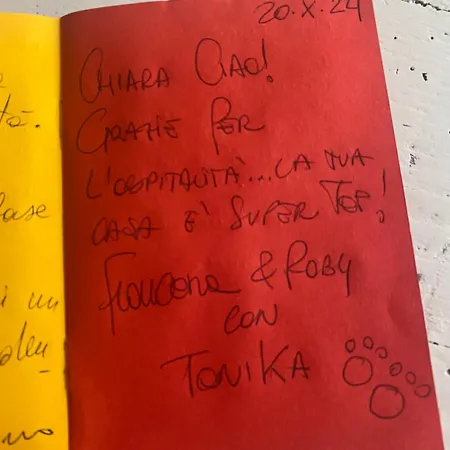 20.X.24
CHIARA CIAO!
GRAZIE PER
L'OSPITALITÀ...LA TUA
CASA E' SUPER TOP!
& ROBY
CON
TONIKA
tà.
ase
i un